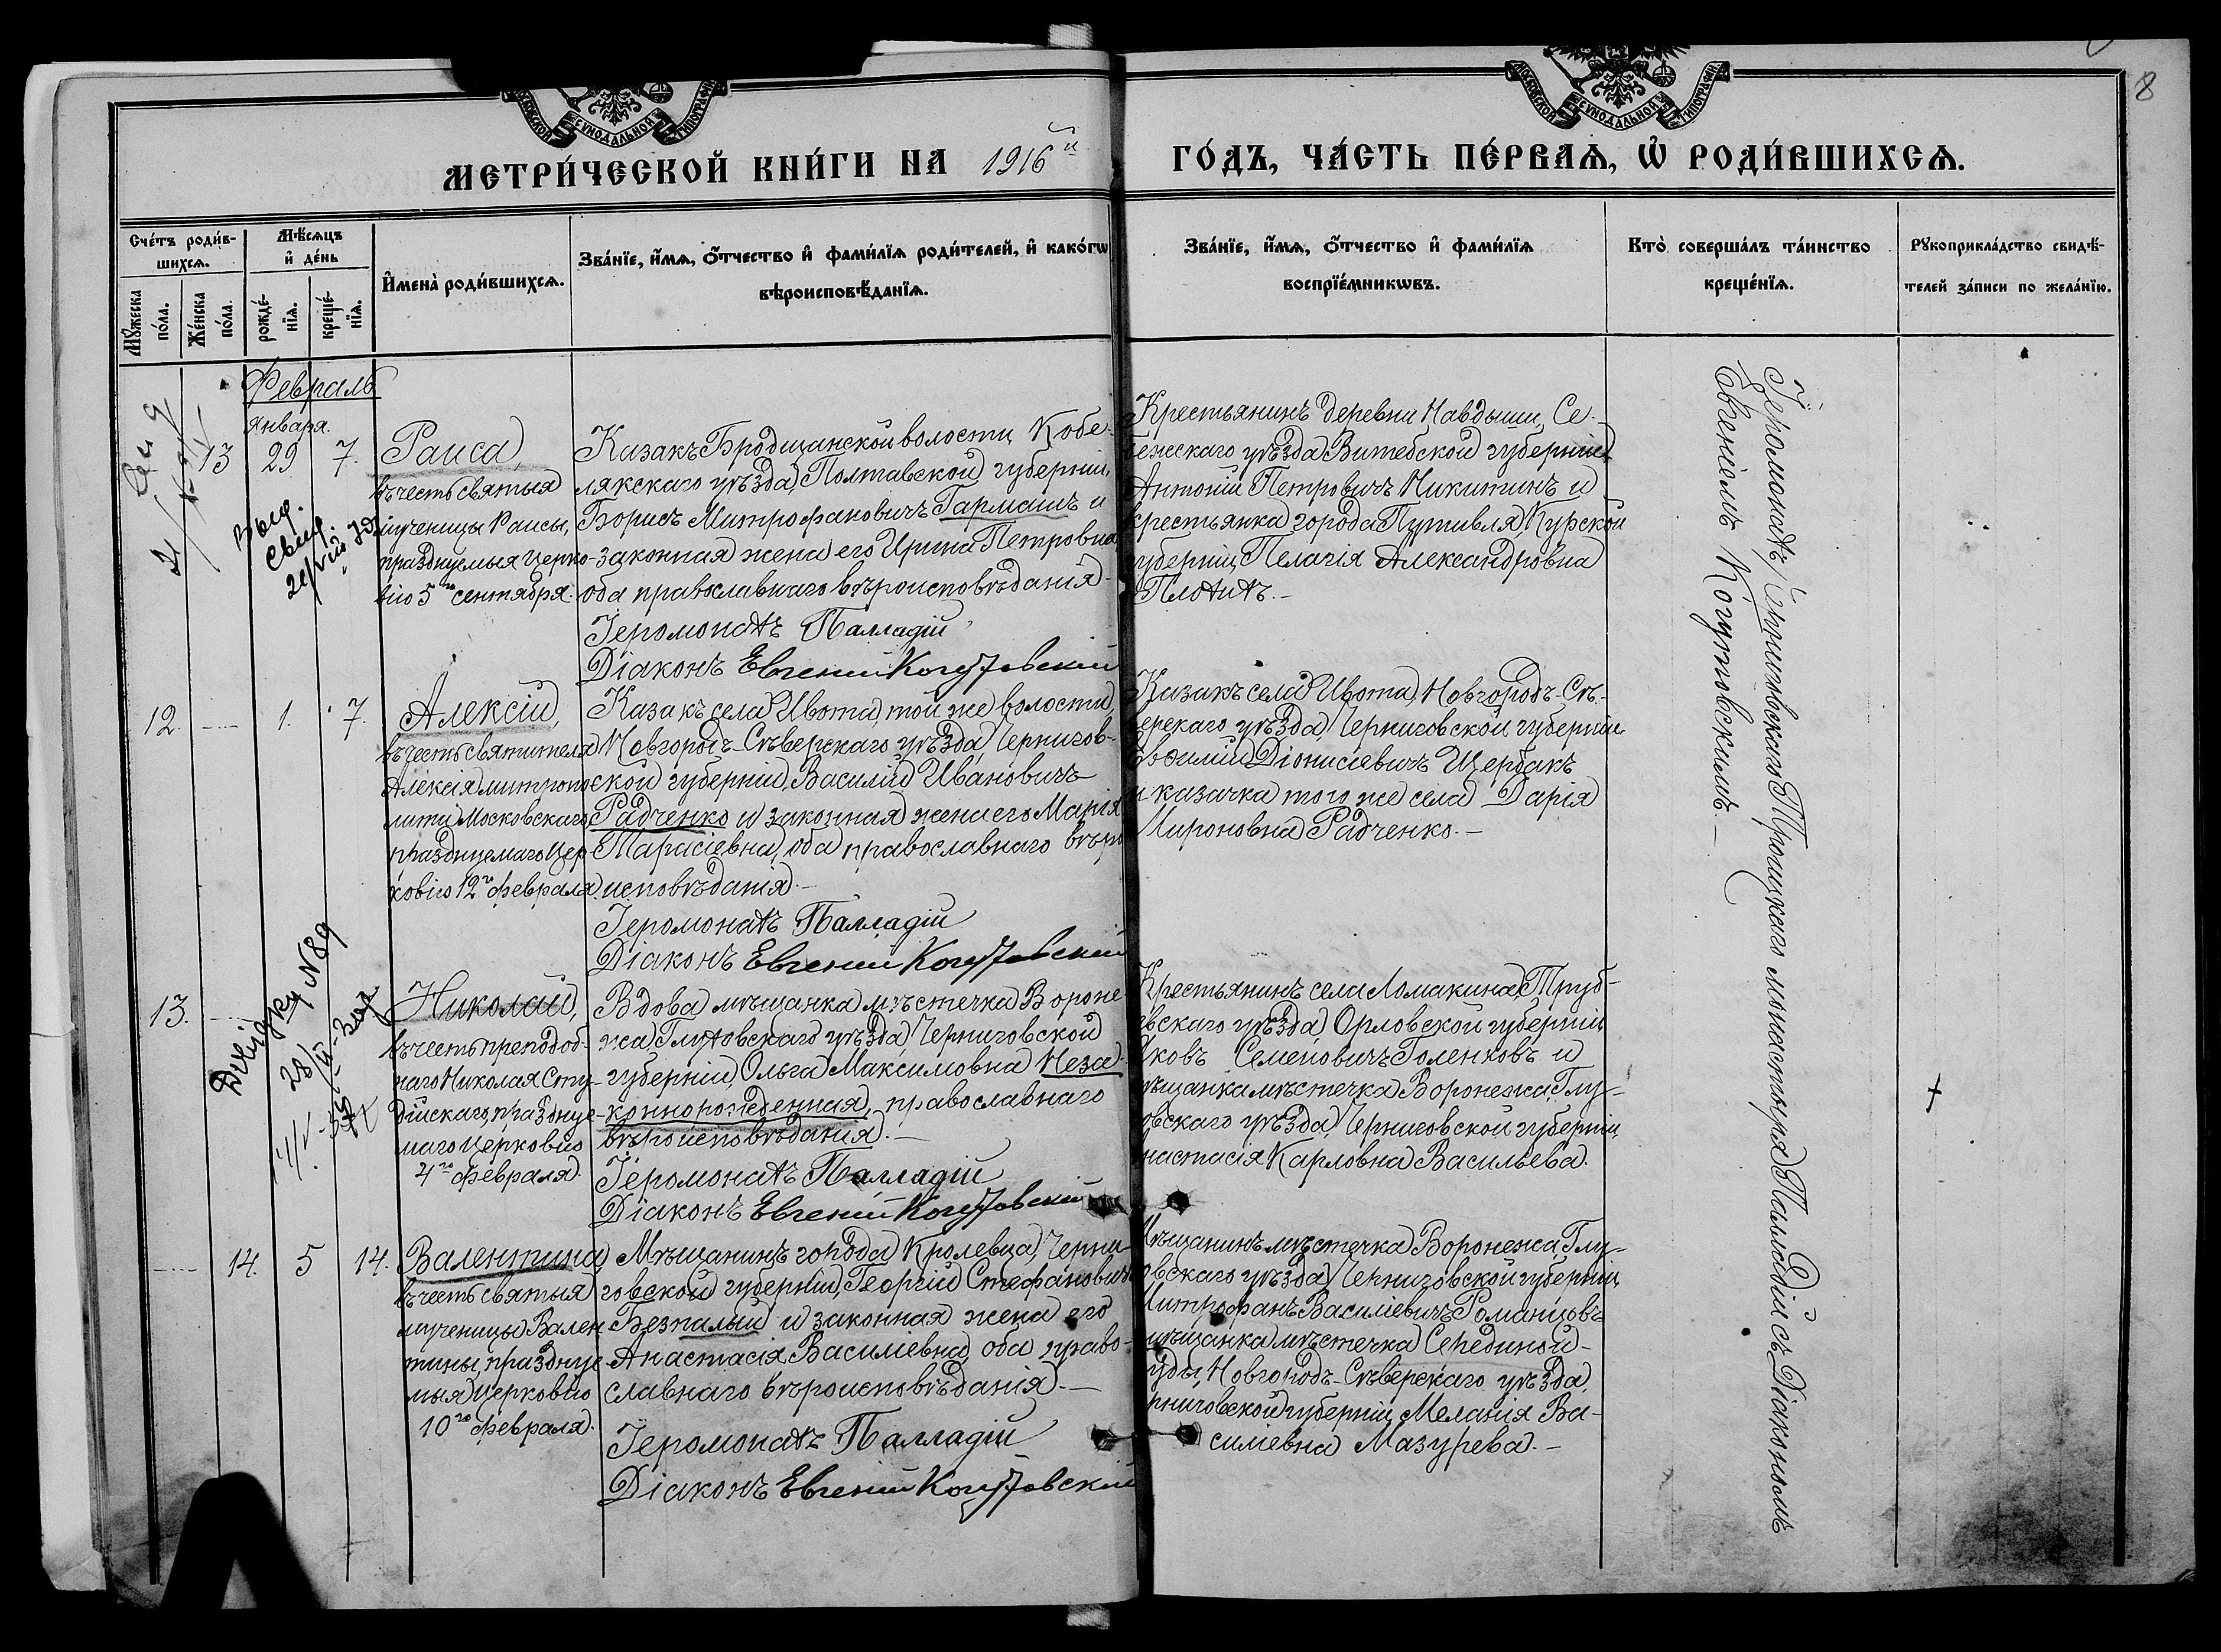 8
МОСКОВСКОЙ СУНОДАЛЬНОЙ ТИПОГРАФІИ
МОСКОВСКОЙ СУНОДАЛЬНОЙ ТИПОГРАФІИ
МЕТРИ́ЧЕСКОЙ КНИ́ГИ НА 1916й ГО́ДЪ, ЧА́СТЬ ПЕ́РВАѦ, Ѡ҆ РОДИ́ВШИХСѦ.
Сче́тъ роди́в-
шихсѧ.
Мꙋ́жеска
по́ла.
Же́нска
по́ла.
Мѣ́сѧцъ
и҆ де́нь
рожде́-
нїѧ.
креще́-
нїѧ.
И҆мена̀ роди́вшихсѧ.
Зва́нїе, и҆́мѧ, ѻ҆́тчество и҆ фами́лїѧ роди́телей, и҆ како́гѡ
вѣроисповѣ́данїѧ.
Зва́нїе, и҆́мѧ, ѻ҆́тчество и҆ фами́лїѧ
воспрїе́мникѡвъ.
Кто̀ соверша́лъ та́инство
креще́нїѧ.
Рꙋкоприкла́дство свидѣ́-
телей за́писи по жела́нїю.
Февраль
Января.
13 29 7.
Раиса,
въ честь святыя
мученицы Раисы,
празднуемыя Церко-
вію 5го сентября.
Казакъ Бродщанской волости Кобе-
лякскаго уѣзда, Полтавской губерніи,
Борисъ Митрофановичъ Гармашъ и
законная жена его Ирина Петровна
оба православнаго вѣроисповѣданія.
Іеромонахъ Палладій
Діаконъ Евгеній Когутовскій
Крестьянинъ деревни Навдыши, Се-
бежскаго уѣзда Витебской губерніи
Антоній Петровичъ Никитинъ и
крестьянка города Путивля, Курской
губерніи Пелагія Александровна
Плохихъ.-
Іеромонахъ Палладій съ Діакономъ
Евгеніемъ Когутовскимъ.-
Выд.
свид.
12. 1. 7.
Алексій,
въ честь святителя
Алексія митропо-
лита Московскаго
празднуемаго Цер-
ковію 12го февраля.
Казакъ села Ивота, той же волости,
Новгородъ-Сѣверскаго уѣзда Чернигов-
ской губерніи, Василій Ивановичъ
Радченко и законная жена его Марія
Тарасіевна, оба православнаго вѣро-
исповѣданія.-
Іеромонахъ Палладій
Діаконъ Евгеній Когутовскій
Казакъ села Ивота, Новгородъ-Сѣ-
верскаго уѣзда Черниговской губерніи
Діонисіевичъ Щербакъ
и казачка того же села Дарія
Мироновна Радченко.-
13.
№ 89
Николай,
въ честь преподоб-
наго Николая Сту-
дійскаго, празднуе-
маго Церковію
4го февраля.
Вдова мѣщанка мѣстечка Вороне-
жа Глуховскаго уѣзда Черниговской
губерніи, Ольга Максимовна Неза-
коннорожденная, православнаго
вѣроисповѣданія.-
Іеромонахъ Палладій
Діаконъ Евгеній Когутовскій
Крестьянинъ села Ломакина, Труб-
чевскаго уѣзда, Орловской губерніи
Яковъ Семеновичъ Голенковъ и
мѣщанка мѣстечка Воронежа, Глу-
ховскаго уѣзда, Черниговской губерніи
Анастасія Карловна Васильева.
14. 5 14.
Валентина,
въ честь святыя
мученицы Вален-
тины, празднуе-
мыя Церковію
10го февраля.
Мѣщанинъ города Кролевца, Черни-
говской губерніи, Георгій Стефановичъ
Безпалый и законная жена его
Анастасія Василіевна, оба право-
славнаго вѣроисповѣданія.-
Іеромонахъ Палладій
Діаконъ Евгеній Когутовскій
Мѣщанинъ мѣстечка Воронежа, Глу-
ховскаго уѣзда, Черниговской губерніи,
Митрофанъ Василіевичъ Романцовъ
мѣщанка мѣстечка Середино́й-
Буды, Новгородъ-Сѣверскаго уѣзда,
Черниговской губерніи, Меланія Ва-
силіевна Мазурева.-